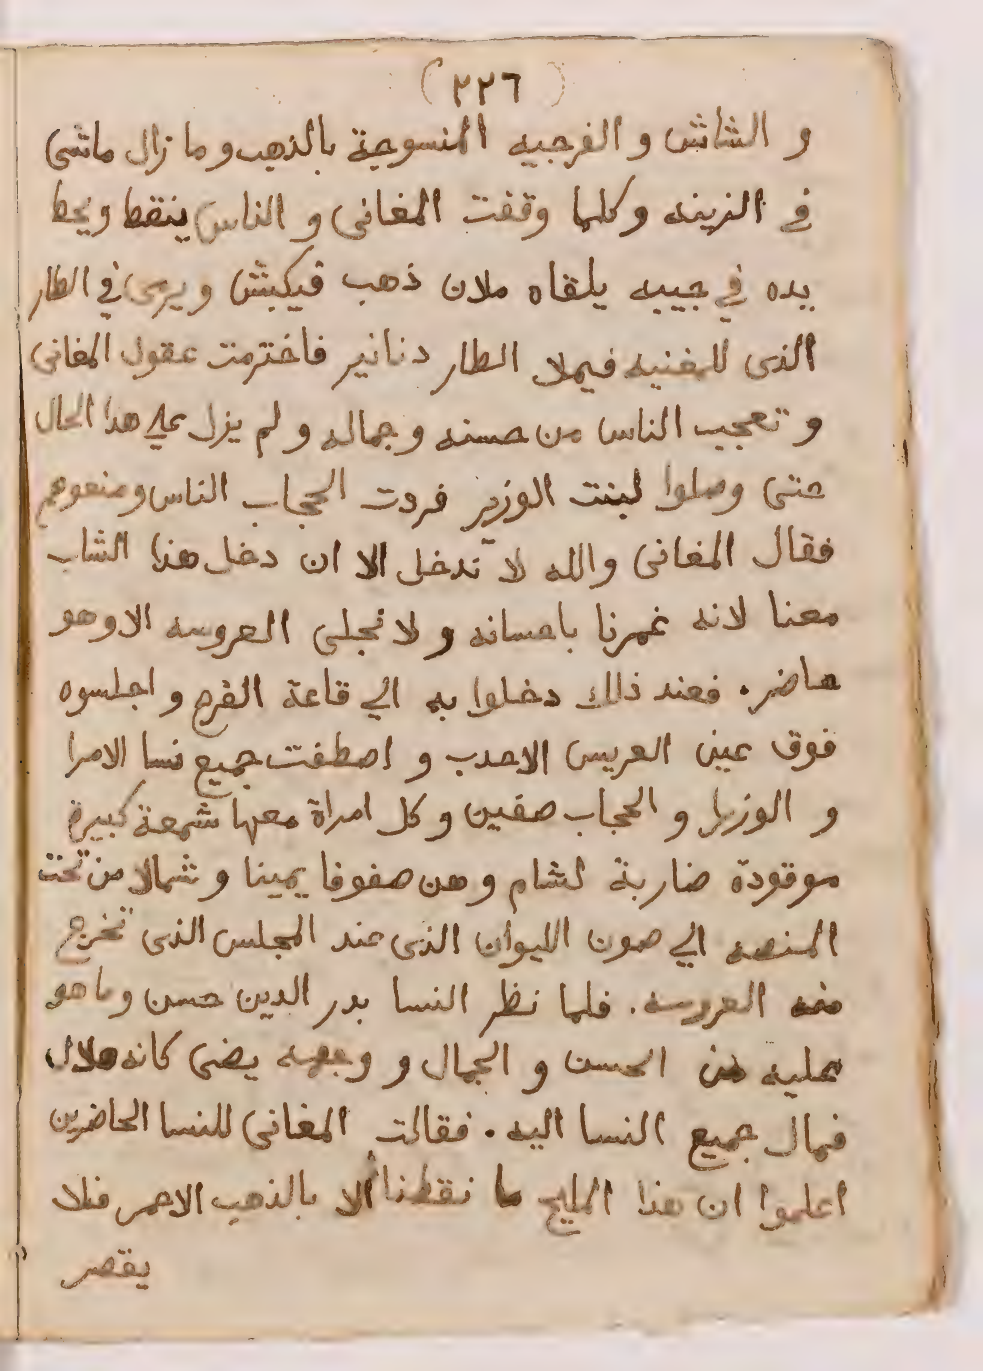 (٢٢٦)
و الشاش و الفرجيه المنسوجة بالذهب و ما زال ماشي
في الزينه وكلما وقفت المغاني و الناس ينقط ويحط
يده في جيبه يلقاه ملان ذهب فيكبش ويرمي في الطار
الذي للمغنيه فيملا الطار دنانير فاخترمت عقول المغاني
و تعجب الناس من حسنه و جماله و لم يزل علي هدا الحال
حتي وصلوا لبنت الوزير فردت الحجاب الناس ومنعوهم
فقال المغاني والله لا ندخل الا ان دخل هذا الشاب
معنا لانه غمرنا باحسانه و لا نجلي العروسه الاوهو
حاضر. فعند ذلك دخلوا به الي قاعة الفرح و اجلسوه
فوق عين العريس الاحدب و اصطفت جميع نسا الامرا
و الوزرا و الحجاب صفين وكل امراة معها شمعة كبيرة
موقودة ضاربة لشام وهن صفوفا يمينا و شمالا من تحت
المنصه الي صون الليوان الذي عند المجلس الذي تخرج
منه العروسه. فلما نظر النسا بدر الدين حسن وما هو
عليه من الحسن و الجمال و وجهه يضي كانه هلال
فمال جميع النسا اليه. فقالت المغاني للنسا الحاضرين
اعلموا ان هذا المليح ما نقطنا الا بالذهب الاحمر فلا
يقصر